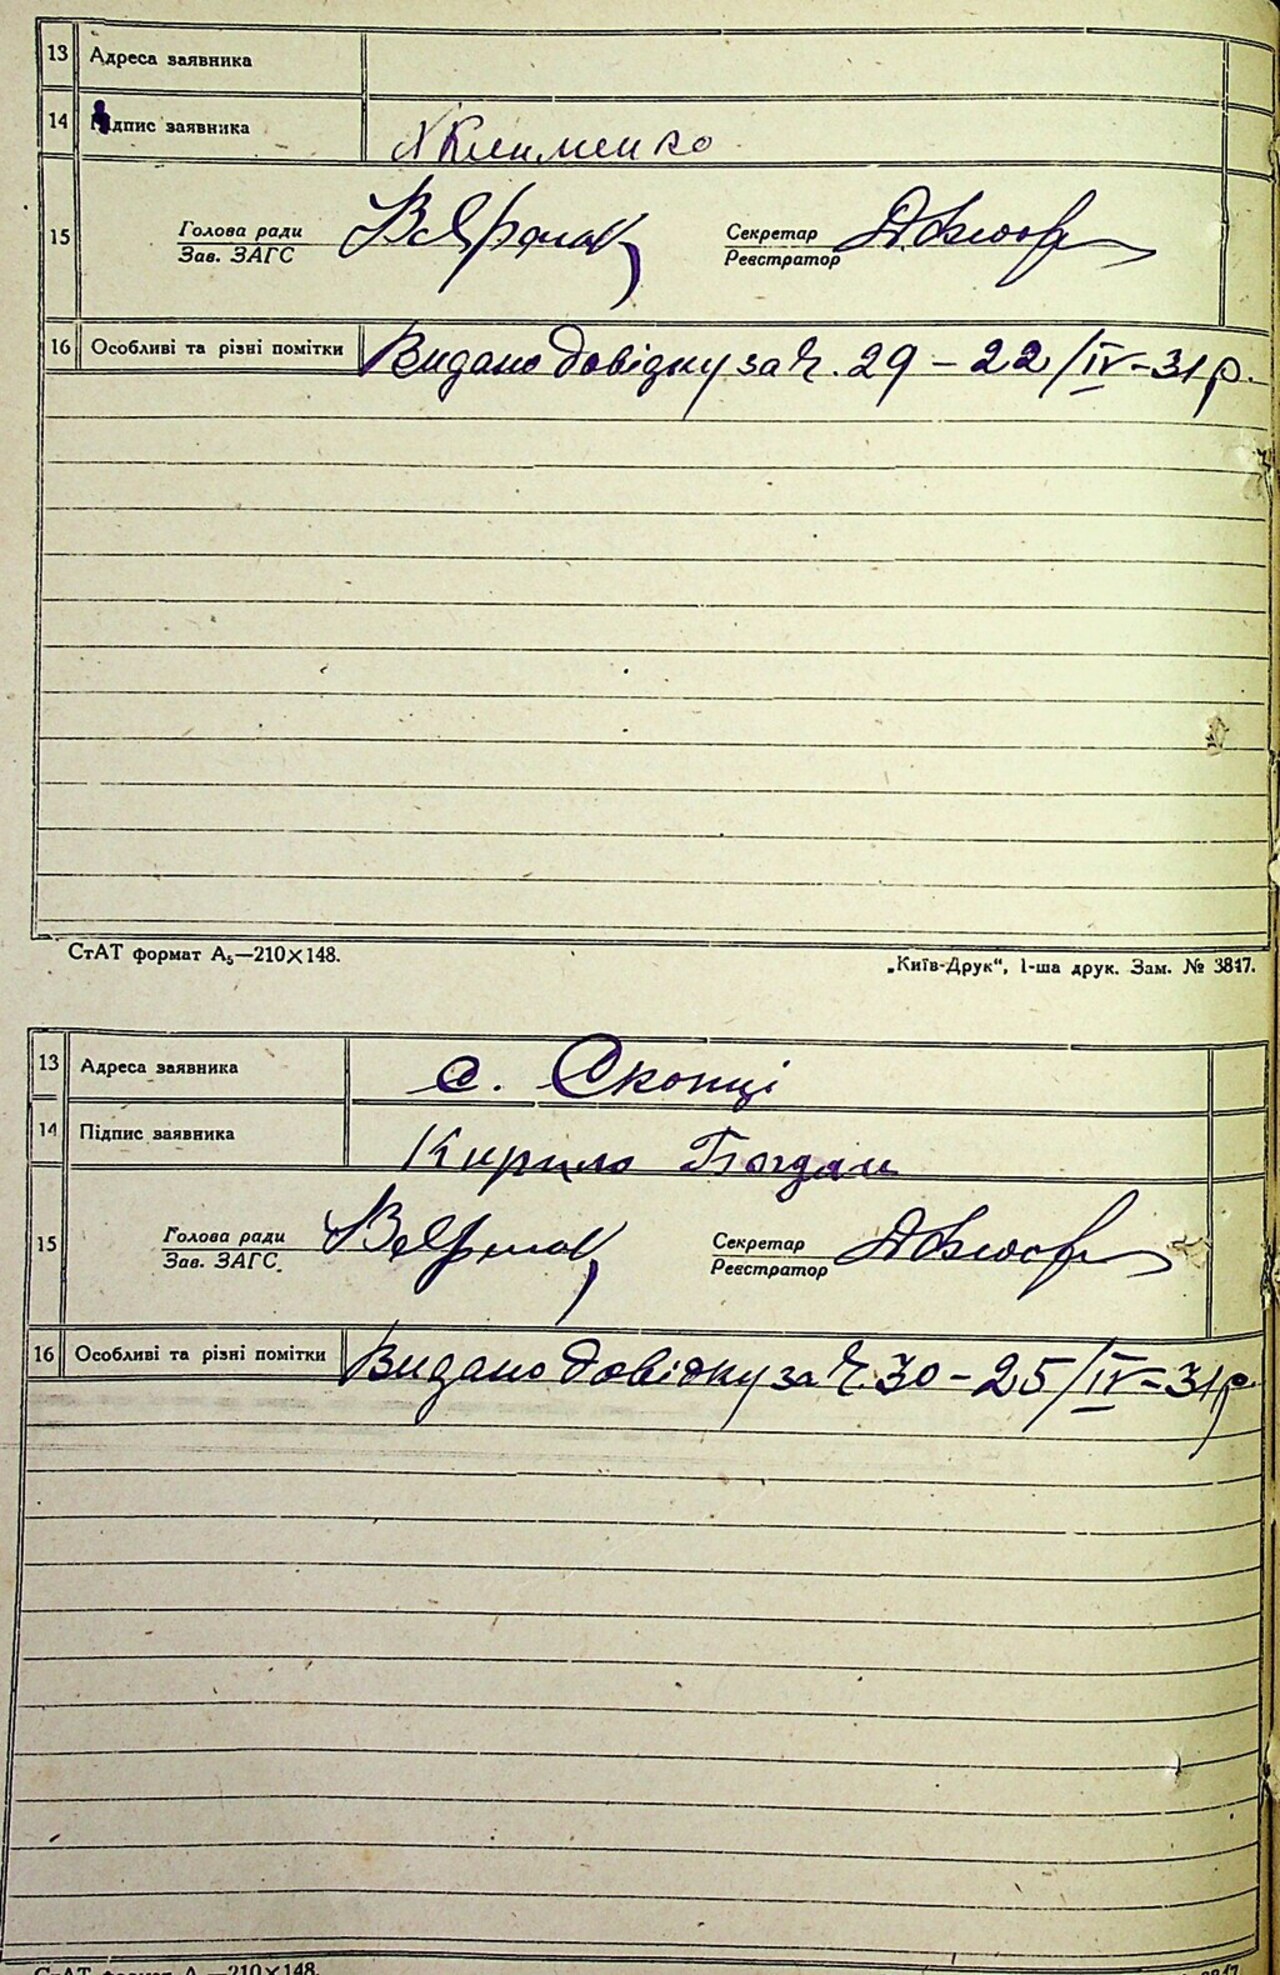 13 Адреса заявника
14 Підпис заявника Клименко
15 Голова ради Секретар
Зав. ЗАГС Реєстратор
16 Особливі та різні помітки Видано довідку за ч. 29 – 22/IV–31 р.
СтАТ формат А₅—210×148.
„Київ-Друк“, 1-ша друк. Зам. № 3847.
13 Адреса заявника с. Скопці
14 Підпис заявника Кирило Богдан
15 Голова ради Секретар
Зав. ЗАГС. Реєстратор
16 Особливі та різні помітки Видано довідку за ч. 30 – 25/IV–31 р.
СтАТ формат А —210×148.